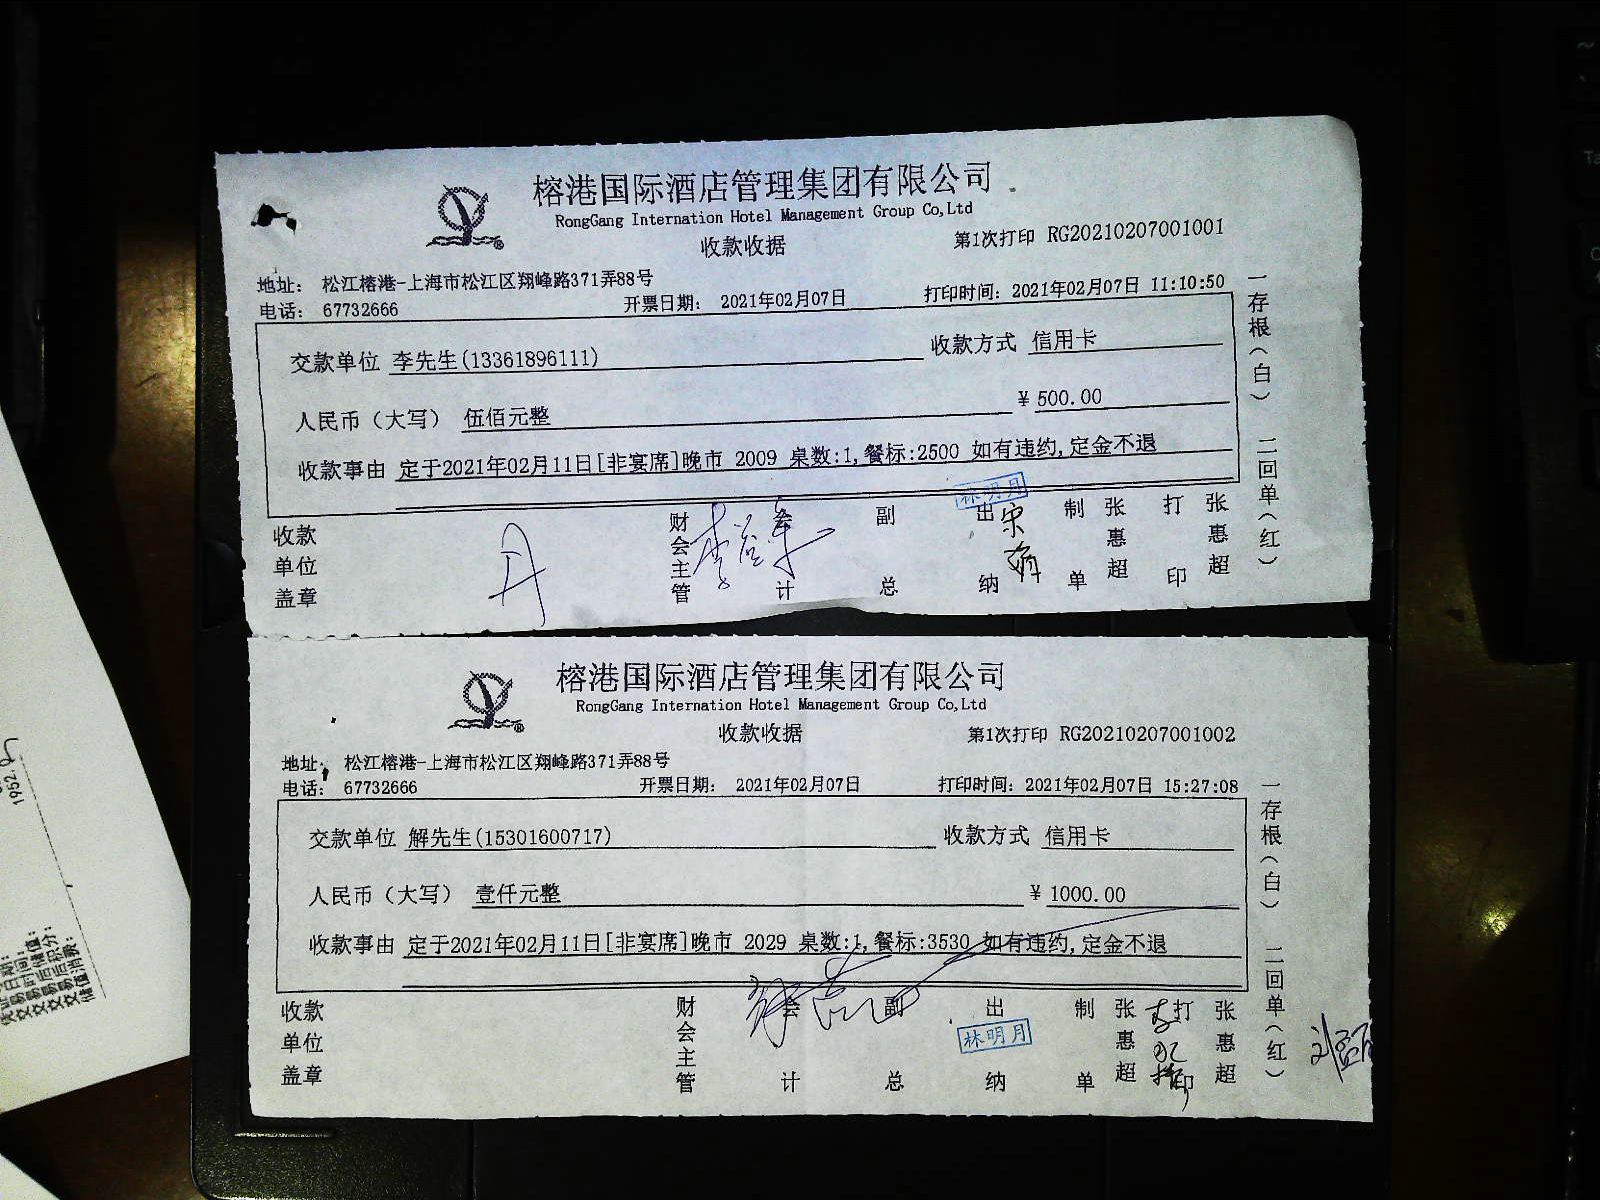 榕港国际酒店管理集团有限公司
RongGang Internation Hotel Management Group Co,Ltd
收款收据
第1次打印 RG20210207001001
地址： 松江榕港-上海市松江区翔峰路371弄88号
电话： 67732666
开票日期： 2021年02月07日
打印时间：2021年02月07日 11:10:50
交款单位 李先生(13361896111)
收款方式 信用卡
人民币（大写） 伍佰元整
¥ 500.00
收款事由 定于2021年02月11日[非宴席]晚市 2009 桌数:1,餐标:2500 如有违约,定金不退
林明月
收款单位盖章
财会主管
会计
副总
出纳
制单 张惠超
打印 张惠超
一存根（白） 二回单（红）
榕港国际酒店管理集团有限公司
RongGang Internation Hotel Management Group Co,Ltd
收款收据
第1次打印 RG20210207001002
地址： 松江榕港-上海市松江区翔峰路371弄88号
电话： 67732666
开票日期： 2021年02月07日
打印时间：2021年02月07日 15:27:08
交款单位 解先生(15301600717)
收款方式 信用卡
人民币（大写） 壹仟元整
¥ 1000.00
收款事由 定于2021年02月11日[非宴席]晚市 2029 桌数:1,餐标:3530 如有违约,定金不退
收款单位盖章
财会主管
会计
副总
出纳
林明月
制单 张惠超
打印 张惠超
一存根（白） 二回单（红）